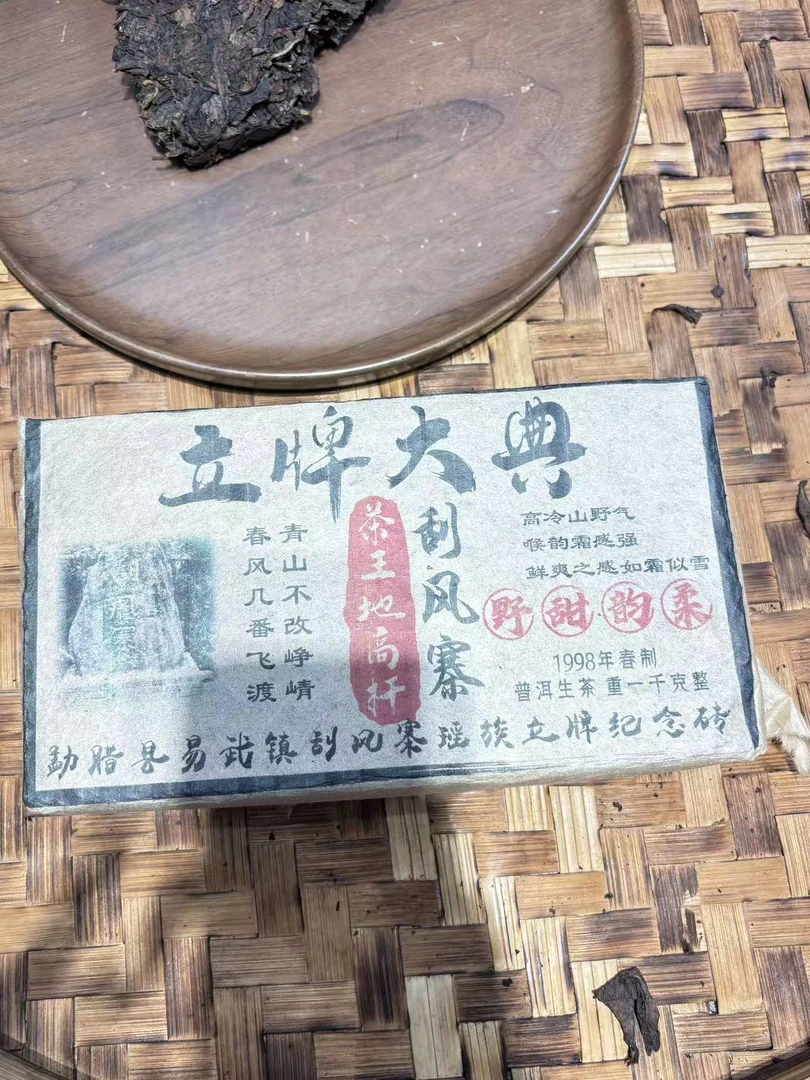 立牌大典
青山不改峥嵴
春风几番飞渡
茶王地高扞
刮风寨
高冷山野气
喉韵霜感强
鲜爽之感如霜似雪
野甜·韵柔
1998年春制
普洱生茶 重一千克整
勐腊县易武镇刮风寨瑶族立牌纪念砖